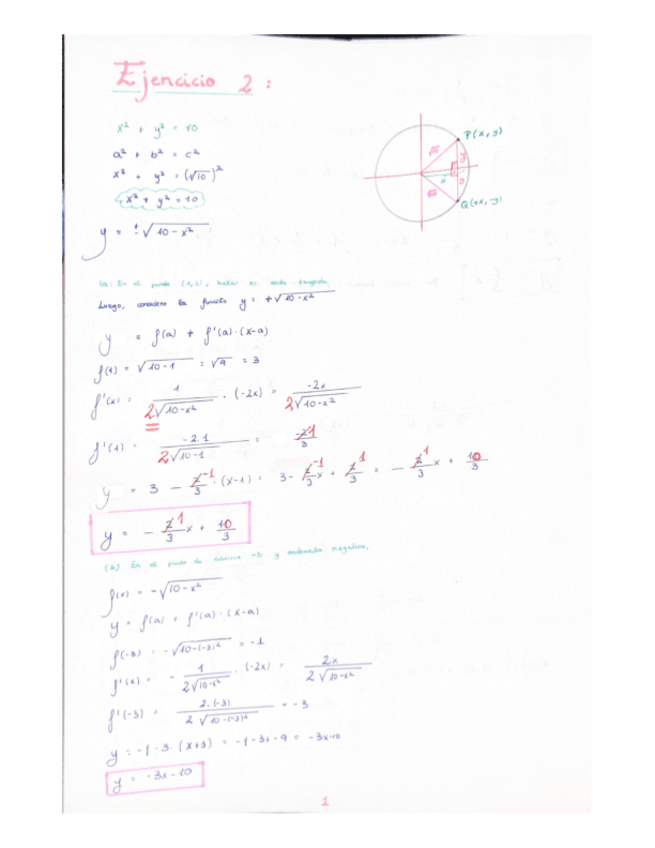 Ejercicio 2:
x² + y² = 10
a² + b² = c²
x² + y² = (√10)²
x² + y² = 10
y = ±√10-x²
P(x, y)
√10
y
x
y
√10
Q(+x, -y)
(a) En el punto (1,3), hallar ec. recta tangente
Luego, considero la función y = +√10-x²
y = f(a) + f'(a)·(x-a)
f(1) = √10-1 = √9 = 3
f'(x) = 1/2√10-x² · (-2x) = -2x/2√10-x²
f'(1) = -2·1/2√10-1 = -1/3
y = 3 - 1/3 · (x-1) = 3 - 1/3 x + 1/3 = - 1/3 x + 10/3
y = - 1/3 x + 10/3
(b) En el punto de abscisa -3 y ordenada negativa.
f(x) = -√10-x²
y = f(a) + f'(a)·(x-a)
f(-3) = -√10-(-3)² = -1
f'(x) = - 1/2√10-x² · (-2x) = 2x/2√10-x²
f'(-3) = 2·(-3)/2√10-(-3)² = -3
y = -1-3·(x+3) = -1-3x-9 = -3x-10
y = -3x-10
1